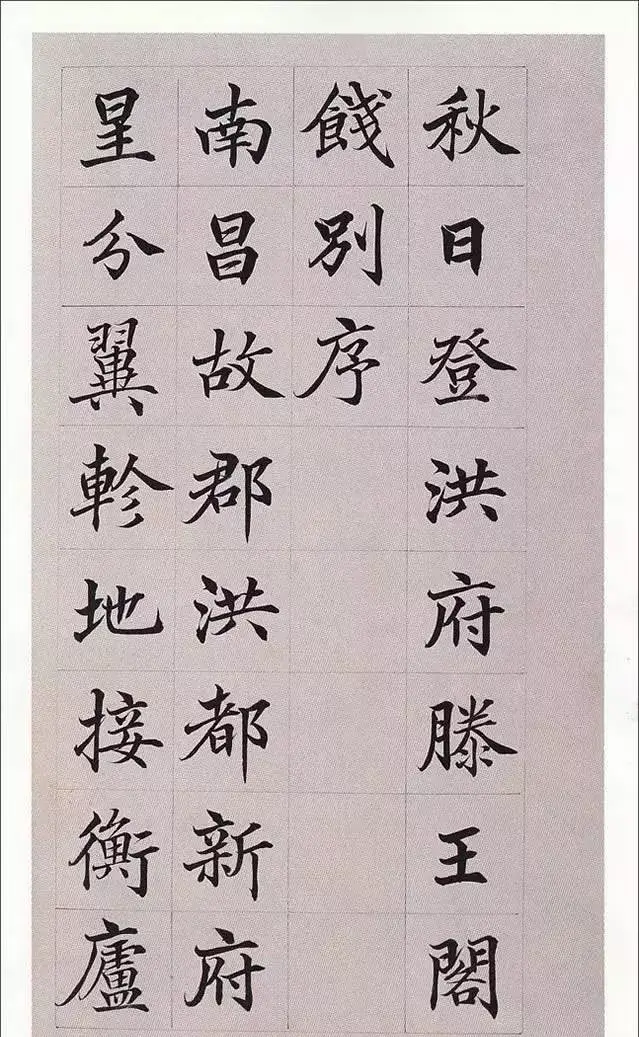 秋日登洪府滕王閣
餞別序
南昌故郡洪都新府
星分翼軫地接衡廬